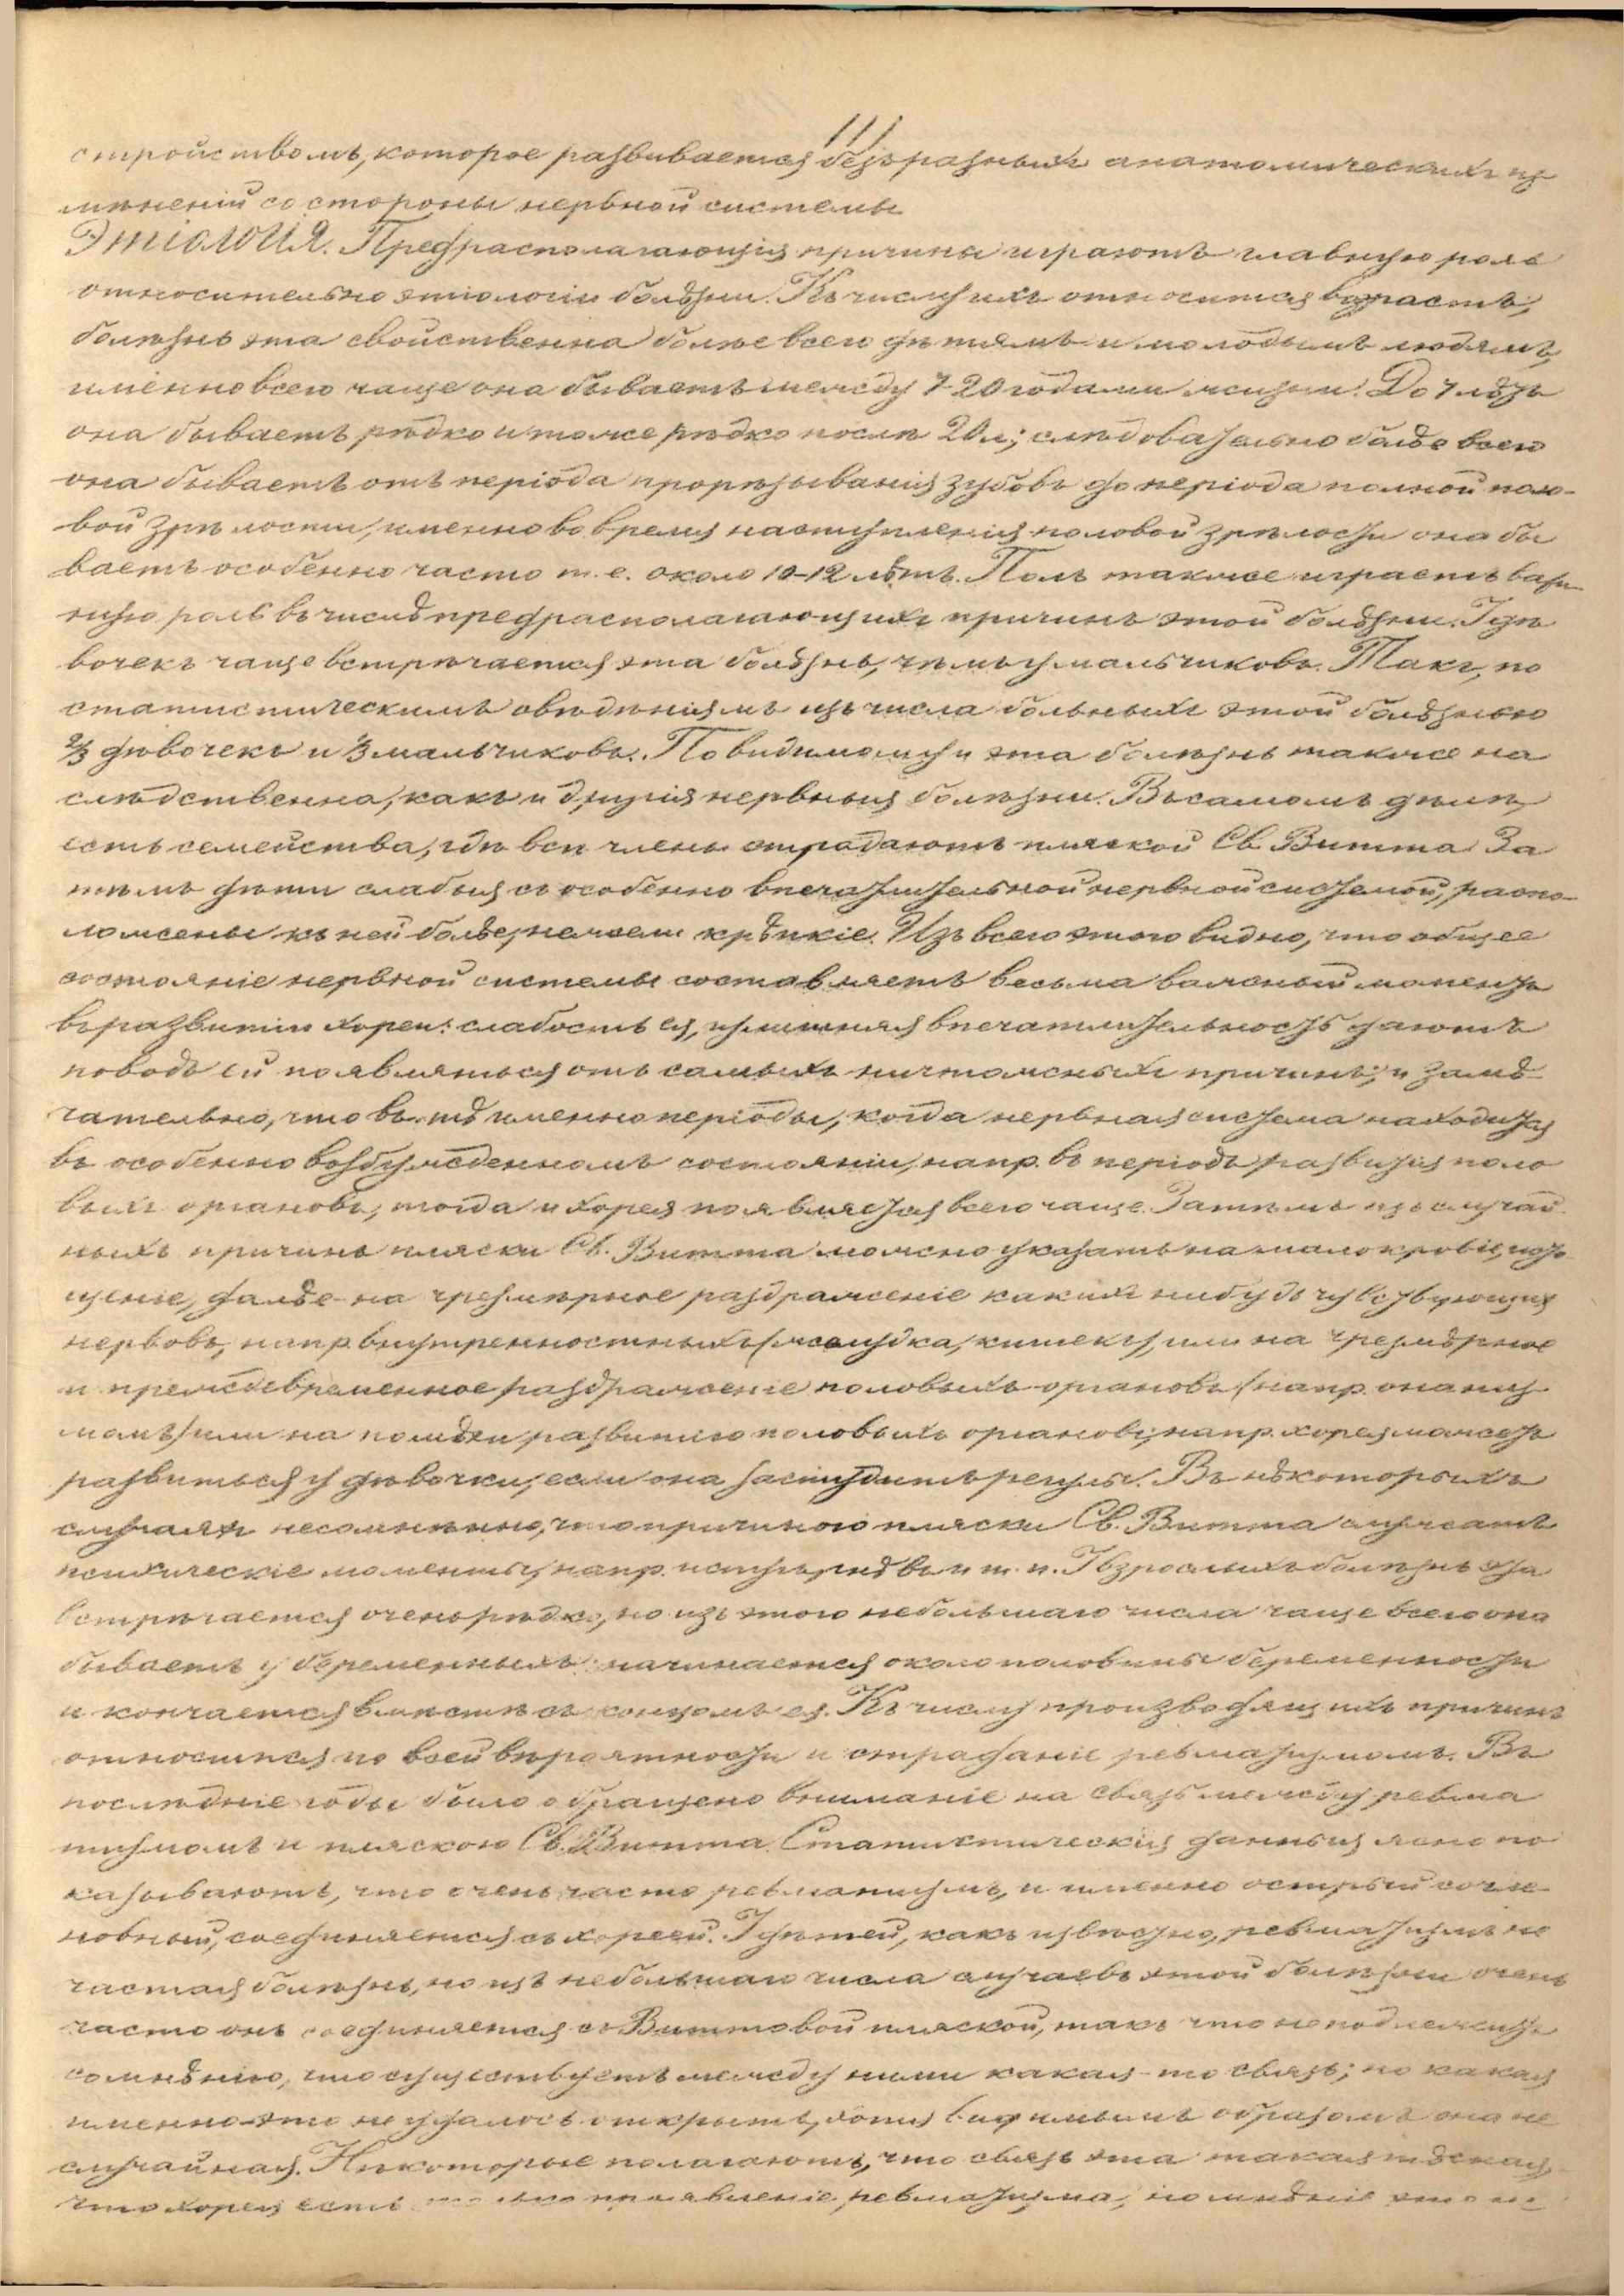 111
стройствомъ, которое развивается безъ разныхъ анатомическихъ из
мѣненій со стороны нервной системы
Этіологія. Предрасполагающія причины играютъ главную роль
относительно этіологіи болѣзни. Къ числу ихъ относится возрастъ,
болѣзнь эта свойственна болѣе всего дѣтямъ и молодымъ людямъ,
именно всего чаще она бываетъ между 7-20 годами жизни. До 7 лѣтъ
она бываетъ рѣдко и тоже рѣдко послѣ 20 л; слѣдовательно болѣе всего
она бываетъ отъ періода прорѣзыванія зубовъ до періода полной поло-
вой зрѣлости, именно во время наступленія половой зрѣлости она бы
ваетъ особенно часто т. е. около 10-12 лѣтъ. Полъ также играетъ важ
ную роль въ числѣ предрасполагающихъ причинъ этой болѣзни. У дѣ
вочекъ чаще встрѣчается эта болѣзнь, чѣмъ у мальчиковъ. Такъ, по
статистическимъ свѣдѣніямъ изъ числа больныхъ этой болѣзнью
2/3 дѣвочекъ и 1/3 мальчиковъ. Повидимому и эта болѣзнь также на
слѣдственна, какъ и другія нервныя болѣзни. Въ самомъ дѣлѣ,
есть семейства, гдѣ всѣ члены страдаютъ пляской Св. Витта. За
тѣмъ дѣти слабыя съ особенно впечатлительной нервной системой, распо-
ложены къ ней болѣе, нежели крѣпкіе. Изъ всего этого видно, что общее
состояніе нервной системы составляетъ весьма важный моментъ
въ развитіи хореи: слабость ея, излишняя впечатлительность даютъ
поводъ ей появляться отъ самыхъ ничтожныхъ причинъ; и замѣ-
чательно, что въ тѣ именно періоды, когда нервная система находится
въ особенно возбужденномъ состояніи, напр. въ періодъ развитія поло
выхъ органовъ, тогда и хорея появляется всего чаще. Затѣмъ изъ случай
ныхъ причинъ пляски Св. Витта можно указать на малокровіе, исто
щеніе, далѣе на чрезмѣрное раздраженіе какихъ нибудь чувствующихъ
нервовъ, напр. внутренностныхъ (желудка, кишекъ), или на чрезмѣрное
и преждевременное раздраженіе половыхъ органовъ (напр. онаниз
момъ) или на помѣхи развитію половыхъ органовъ, напр. хорея можетъ
развиться у дѣвочки, если она застудитъ регулы. Въ нѣкоторыхъ
случаяхъ несомнѣнно, что причиною пляски Св. Витта служатъ
психическіе моменты, напр. испугъ, гнѣвъ и т. п. У взрослыхъ болѣзнь эта
встрѣчается очень рѣдко, но изъ этого небольшаго числа чаще всего она
бываетъ у беременныхъ: начинается около половины беременности
и кончается вмѣстѣ съ концомъ ея. Къ числу производящихъ причинъ
относится по всей вѣроятности и страданіе ревматизмомъ. Въ
послѣдніе годы было обращено вниманіе на связь между ревма
тизмомъ и пляскою Св. Витта. Статистическія данныя ясно по
казываютъ, что очень часто ревматизмъ, и именно острый сочле
новный, соединяется съ хореей. У дѣтей, какъ извѣстно, ревматизмъ не
частая болѣзнь, но изъ небольшаго числа случаевъ этой болѣзни очень
часто онъ соединяется съ Виттовой пляской, такъ что не подлежитъ
сомнѣнію, что существуетъ между ними какая-то связь; но какая
именно это не удалось открыть, образомъ она не
случайная. Нѣкоторые полагаютъ, что связь эта такая тѣсная,
что хорея есть проявленіе ревматизма, но мнѣніе это не